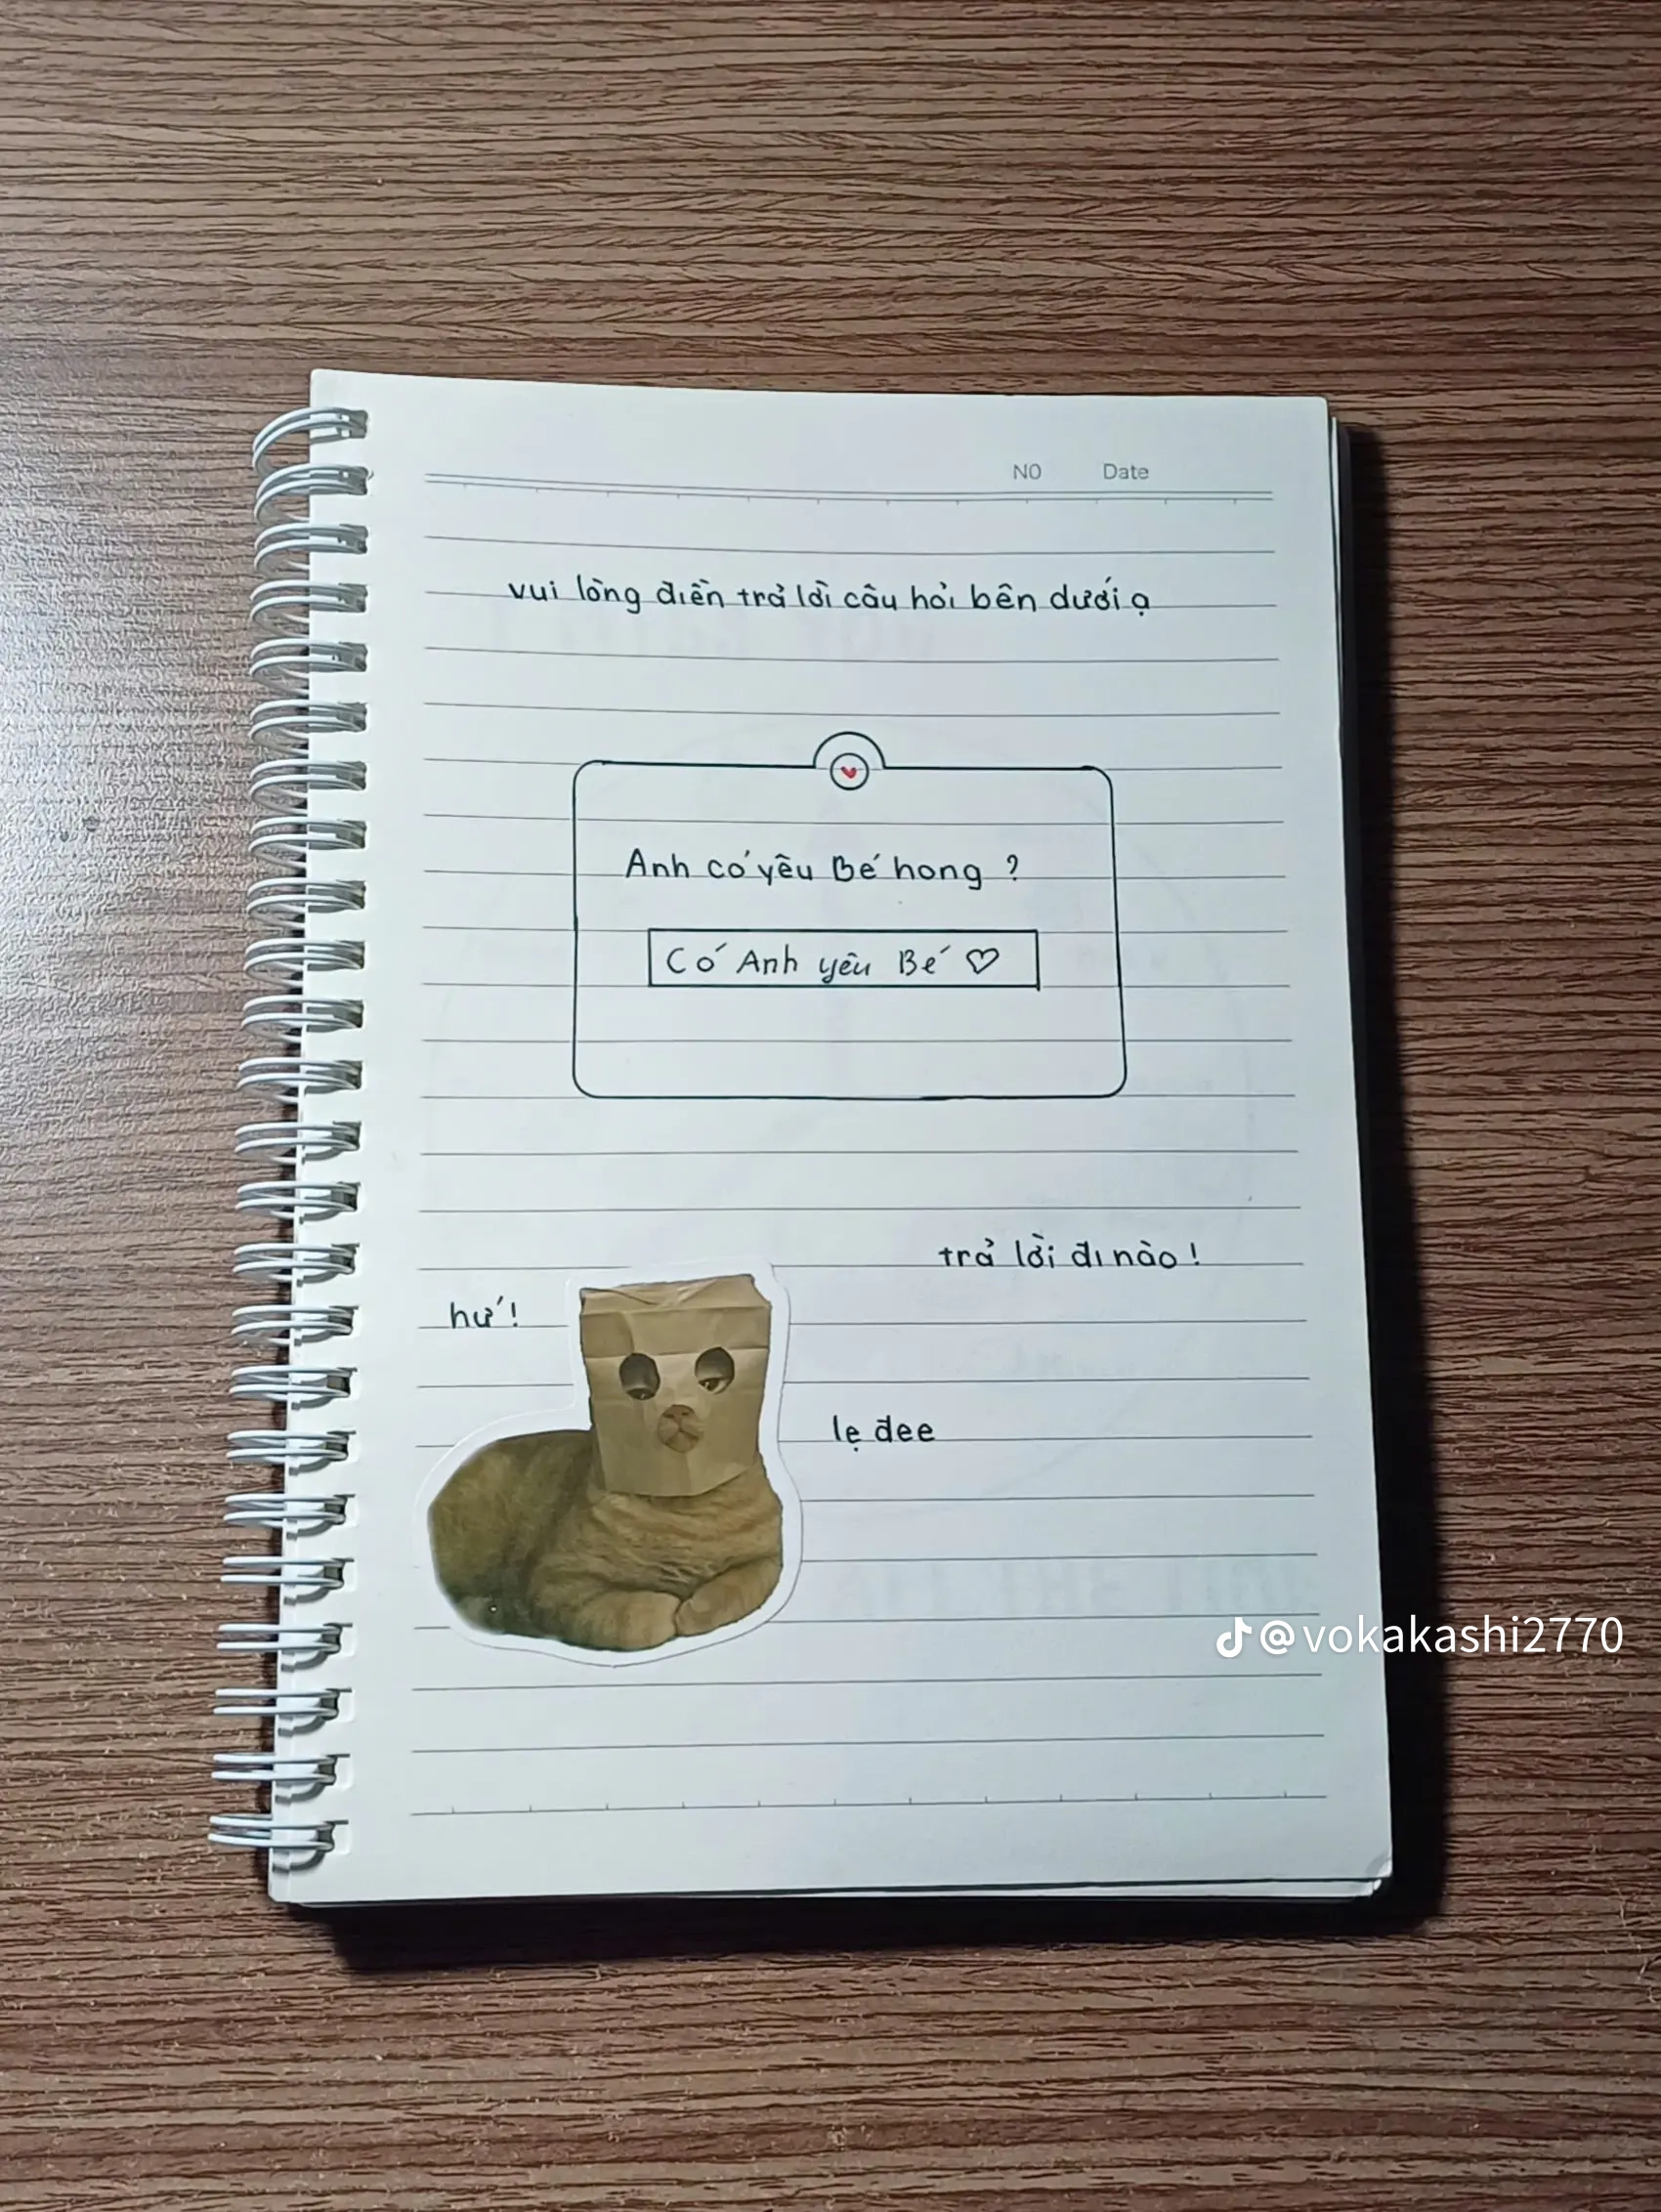 N0 Date
vui lòng điền trả lời câu hỏi bên dưới ạ
Anh có yêu Bé hong ?
Có Anh yêu Bé ♡
trả lời đi nào !
hứ !
lẹ đee
@vokakashi2770